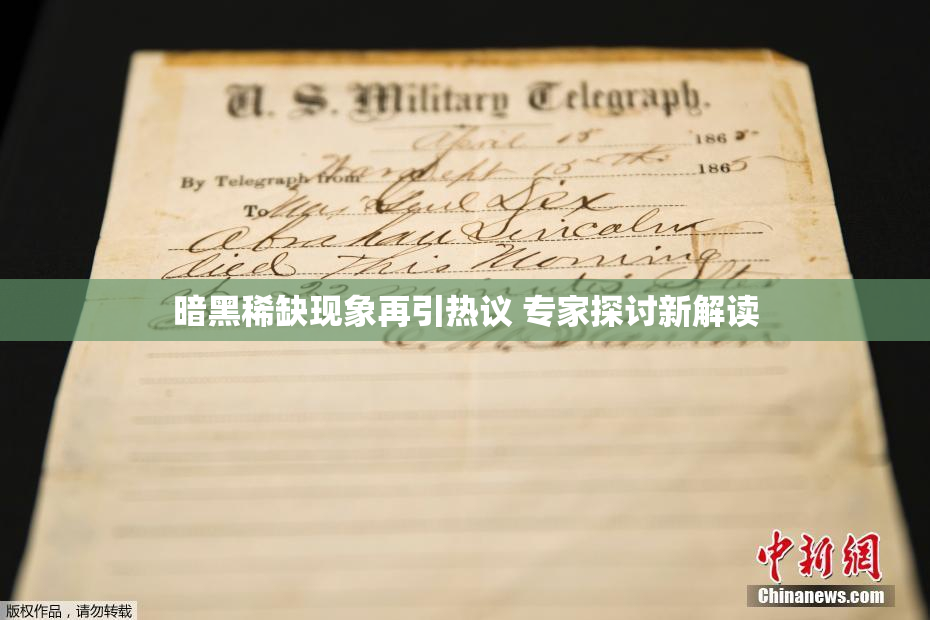 U. S. Military Telegraph.
April 15 1865
By Telegraph from War Dept 15th 1865
To Maj Genl Dix
Abraham Lincoln
died This Morning
22 minutes after
暗黑稀缺现象再引热议 专家探讨新解读
E. M. Stanton
中新网
Chinanews.com
版权作品，请勿转载